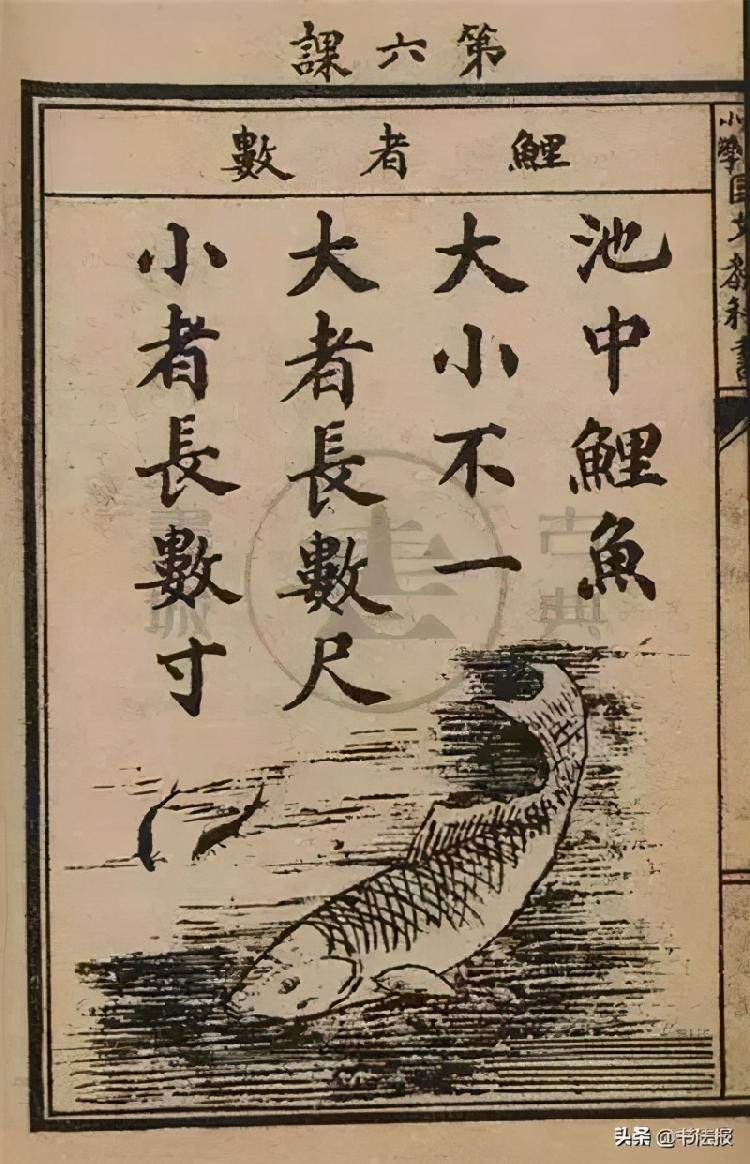 第六課
鯉者數
池中鯉魚
大小不一
大者長數尺
小者長數寸
小學國文教科書
古典
書城
头条 @书法报